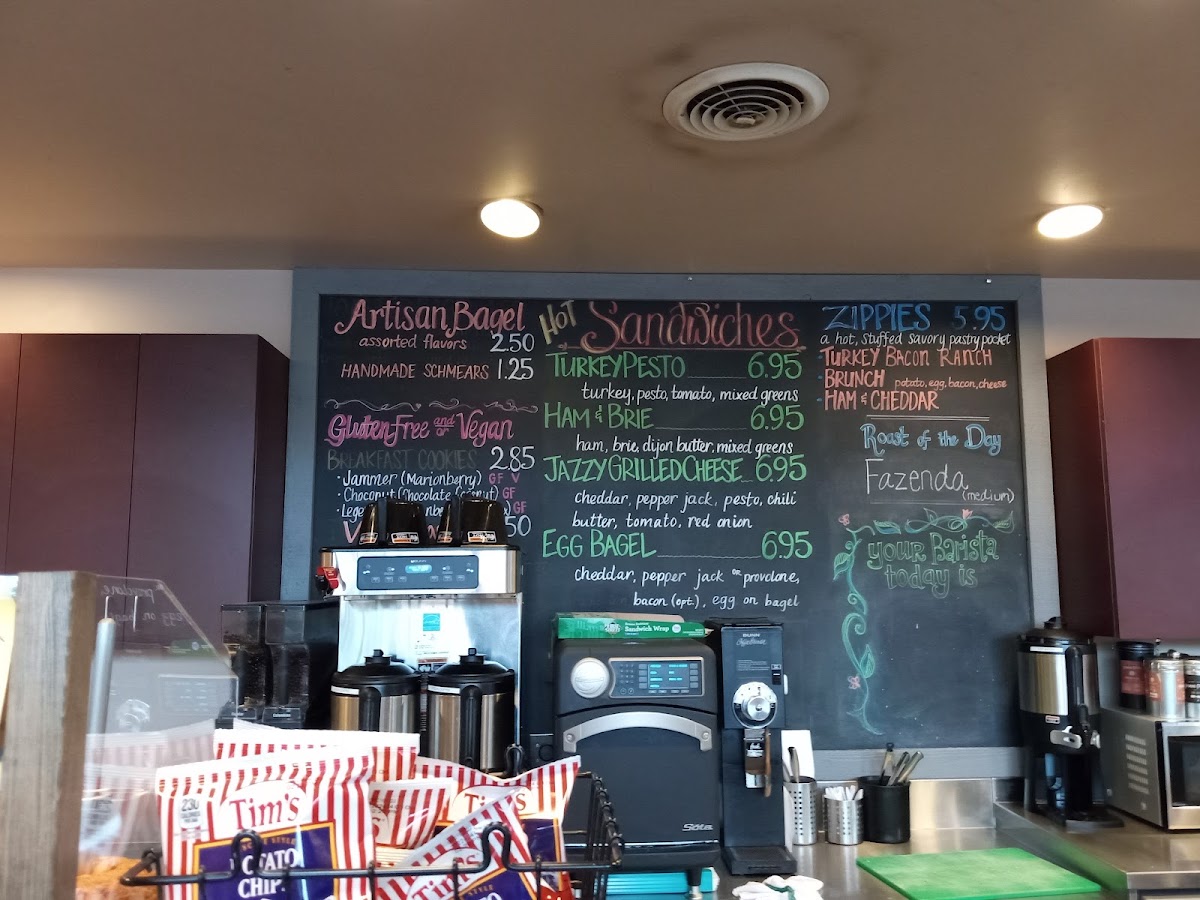 Artisan Bagel
assorted flavors 2.50
HANDMADE SCHMEARS 1.25
Gluten Free and or Vegan
BREAKFAST COOKIES 2.85
· Jammer (Marionberry) GF V
· Choconut (Chocolate Coconut) GF
GF
50
HOT Sandwiches
TURKEY PESTO 6.95
turkey, pesto, tomato, mixed greens
HAM & BRIE 6.95
ham, brie, dijon butter, mixed greens
JAZZY GRILLED CHEESE 6.95
cheddar, pepper jack, pesto, chili
butter, tomato, red onion
EGG BAGEL 6.95
cheddar, pepper jack or provolone,
bacon (opt.), egg on bagel
ZIPPIES 5.95
a hot, stuffed savory pastry pocket
TURKEY BACON RANCH
BRUNCH potato, egg, bacon, cheese
HAM & CHEDDAR
Roast of the Day
Fazenda
(medium)
your Barista
today is
Sandwich Wrap
BUNN
Sōta
Tim's
POTATO
CHIPS
Tim's
Tim's
230